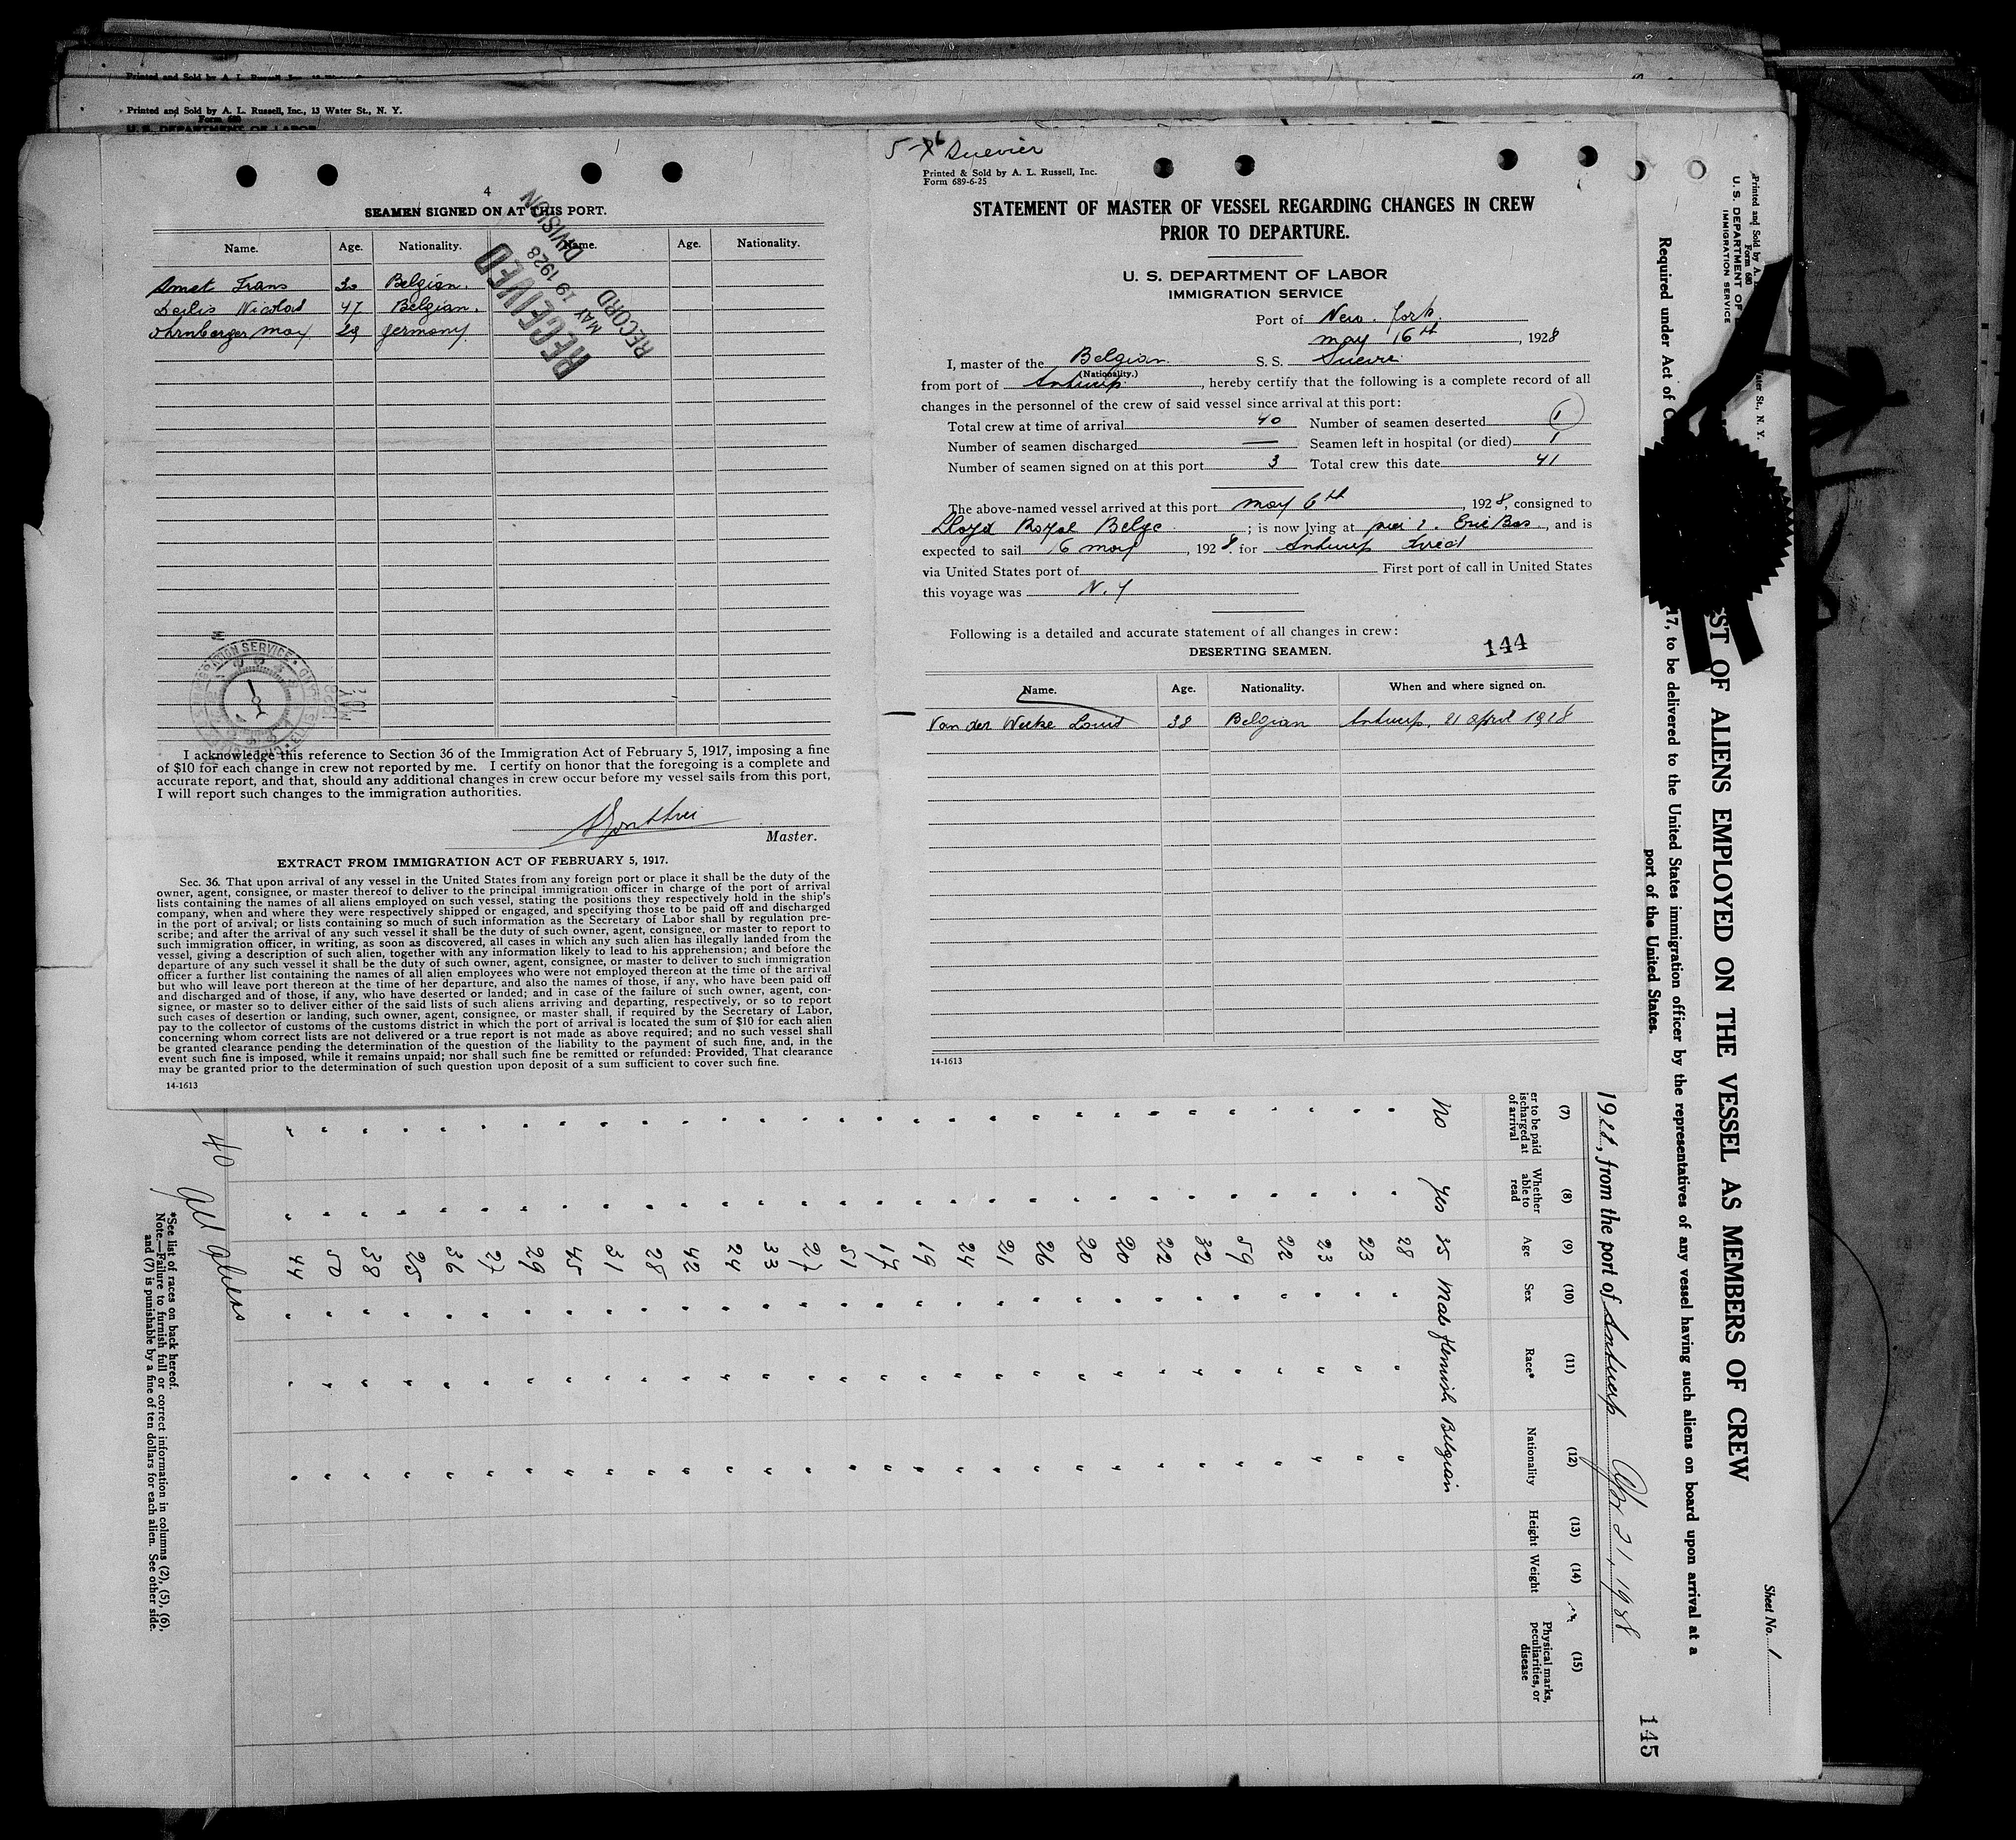 Printed and Sold by A. L. Russell, Inc., 13 Water St., N. Y.
Form 680
U. S. DEPARTMENT OF LABOR
4
SEAMEN SIGNED ON AT THIS PORT.
Name. Age. Nationality. Name. Age. Nationality.
Smet Frans 30 Belgian.
Nicolas 47 Belgian.
Ohrnberger Max 29 Germany
RECEIVED
MAY 19 1928
RECORD DIVISION
I acknowledge this reference to Section 36 of the Immigration Act of February 5, 1917, imposing a fine
of $10 for each change in crew not reported by me. I certify on honor that the foregoing is a complete and
accurate report, and that, should any additional changes in crew occur before my vessel sails from this port,
I will report such changes to the immigration authorities.
Master.
EXTRACT FROM IMMIGRATION ACT OF FEBRUARY 5, 1917.
Sec. 36. That upon arrival of any vessel in the United States from any foreign port or place it shall be the duty of the
owner, agent, consignee, or master thereof to deliver to the principal immigration officer in charge of the port of arrival
lists containing the names of all aliens employed on such vessel, stating the positions they respectively hold in the ship's
company, when and where they were respectively shipped or engaged, and specifying those to be paid off and discharged
in the port of arrival; or lists containing so much of such information as the Secretary of Labor shall by regulation pre-
scribe; and after the arrival of any such vessel it shall be the duty of such owner, agent, consignee, or master to report to
such immigration officer, in writing, as soon as discovered, all cases in which any such alien has illegally landed from the
vessel, giving a description of such alien, together with any information likely to lead to his apprehension; and before the
departure of any such vessel it shall be the duty of such owner, agent, consignee, or master to deliver to such immigration
officer a further list containing the names of all alien employees who were not employed thereon at the time of the arrival
but who will leave port thereon at the time of her departure, and also the names of those, if any, who have been paid off
and discharged and of those, if any, who have deserted or landed; and in case of the failure of such owner, agent, con-
signee, or master so to deliver either of the said lists of such aliens arriving and departing, respectively, or so to report
such cases of desertion or landing, such owner, agent, consignee, or master shall, if required by the Secretary of Labor,
pay to the collector of customs of the customs district in which the port of arrival is located the sum of $10 for each alien
concerning whom correct lists are not delivered or a true report is not made as above required; and no such vessel shall
be granted clearance pending the determination of the question of the liability to the payment of such fine, and, in the
event such fine is imposed, while it remains unpaid; nor shall such fine be remitted or refunded: Provided, That clearance
may be granted prior to the determination of such question upon deposit of a sum sufficient to cover such fine.
14-1613
Suevier
Printed & Sold by A. L. Russell, Inc.
Form 689-6-25
STATEMENT OF MASTER OF VESSEL REGARDING CHANGES IN CREW
PRIOR TO DEPARTURE.
U. S. DEPARTMENT OF LABOR
IMMIGRATION SERVICE
Port of New York.
May 16th, 1928
I, master of the Belgian S. S. Suevier
(Nationality.)
from port of Antwerp, hereby certify that the following is a complete record of all
changes in the personnel of the crew of said vessel since arrival at this port:
Total crew at time of arrival 40 Number of seamen deserted 1
Number of seamen discharged — Seamen left in hospital (or died) 1
Number of seamen signed on at this port 3 Total crew this date 41
The above-named vessel arrived at this port May 6th, 1928, consigned to
Lloyd Royal Belge; is now lying at pier 2. Erie Bas, and is
expected to sail 16 May, 1928. for Antwerp direct
via United States port of First port of call in United States
this voyage was N. Y
Following is a detailed and accurate statement of all changes in crew:
DESERTING SEAMEN.
144
Name. Age. Nationality. When and where signed on.
Van der Weeke Louis 38 Belgian Antwerp, 21 April 1928
14-1613
Sheet No. 1
Printed and Sold by A.
Water St., N. Y.
Form 680
U. S. DEPARTMENT OF
IMMIGRATION SERVICE
ST OF ALIENS EMPLOYED ON THE VESSEL AS MEMBERS OF CREW
Required under Act of C
17, to be delivered to the United States immigration officer by the representatives of any vessel having such aliens on board upon arrival at a
port of the United States.
145
1928, from the port of Antwerp Apr 21, 1928
(7) (8) (9) (10) (11) (12) (13) (14) (15)
er to be paid ischarged at of arrival
Whether able to read
Age
Sex
Race*
Nationality
Height
Weight
Physical marks, peculiarities, or disease
No Yes 35 Male Flemish Belgian
" " 28 " " "
" " 23 " " "
" " 23 " " "
" " 22 " " "
" " 59 " " "
" " 32 " " "
" " 22 " " "
" " 20 " " "
" " 20 " " "
" " 26 " " "
" " 21 " " "
" " 24 " " "
" " 19 " " "
" " 17 " " "
" " 51 " " "
" " 27 " " "
" " 33 " " "
" " 24 " " "
" " 42 " " "
" " 28 " " "
" " 31 " " "
" " 45 " " "
" " 29 " " "
" " 27 " " "
" " 36 " " "
" " 25 " " "
" " 38 " " "
" " 50 " " "
" " 44 " " "
40 All Aliens
*See list of races on back hereof.
Note.—Failure to furnish full or correct information in columns (2), (5), (6),
and (7) is punishable by a fine of ten dollars for each alien. See other side.